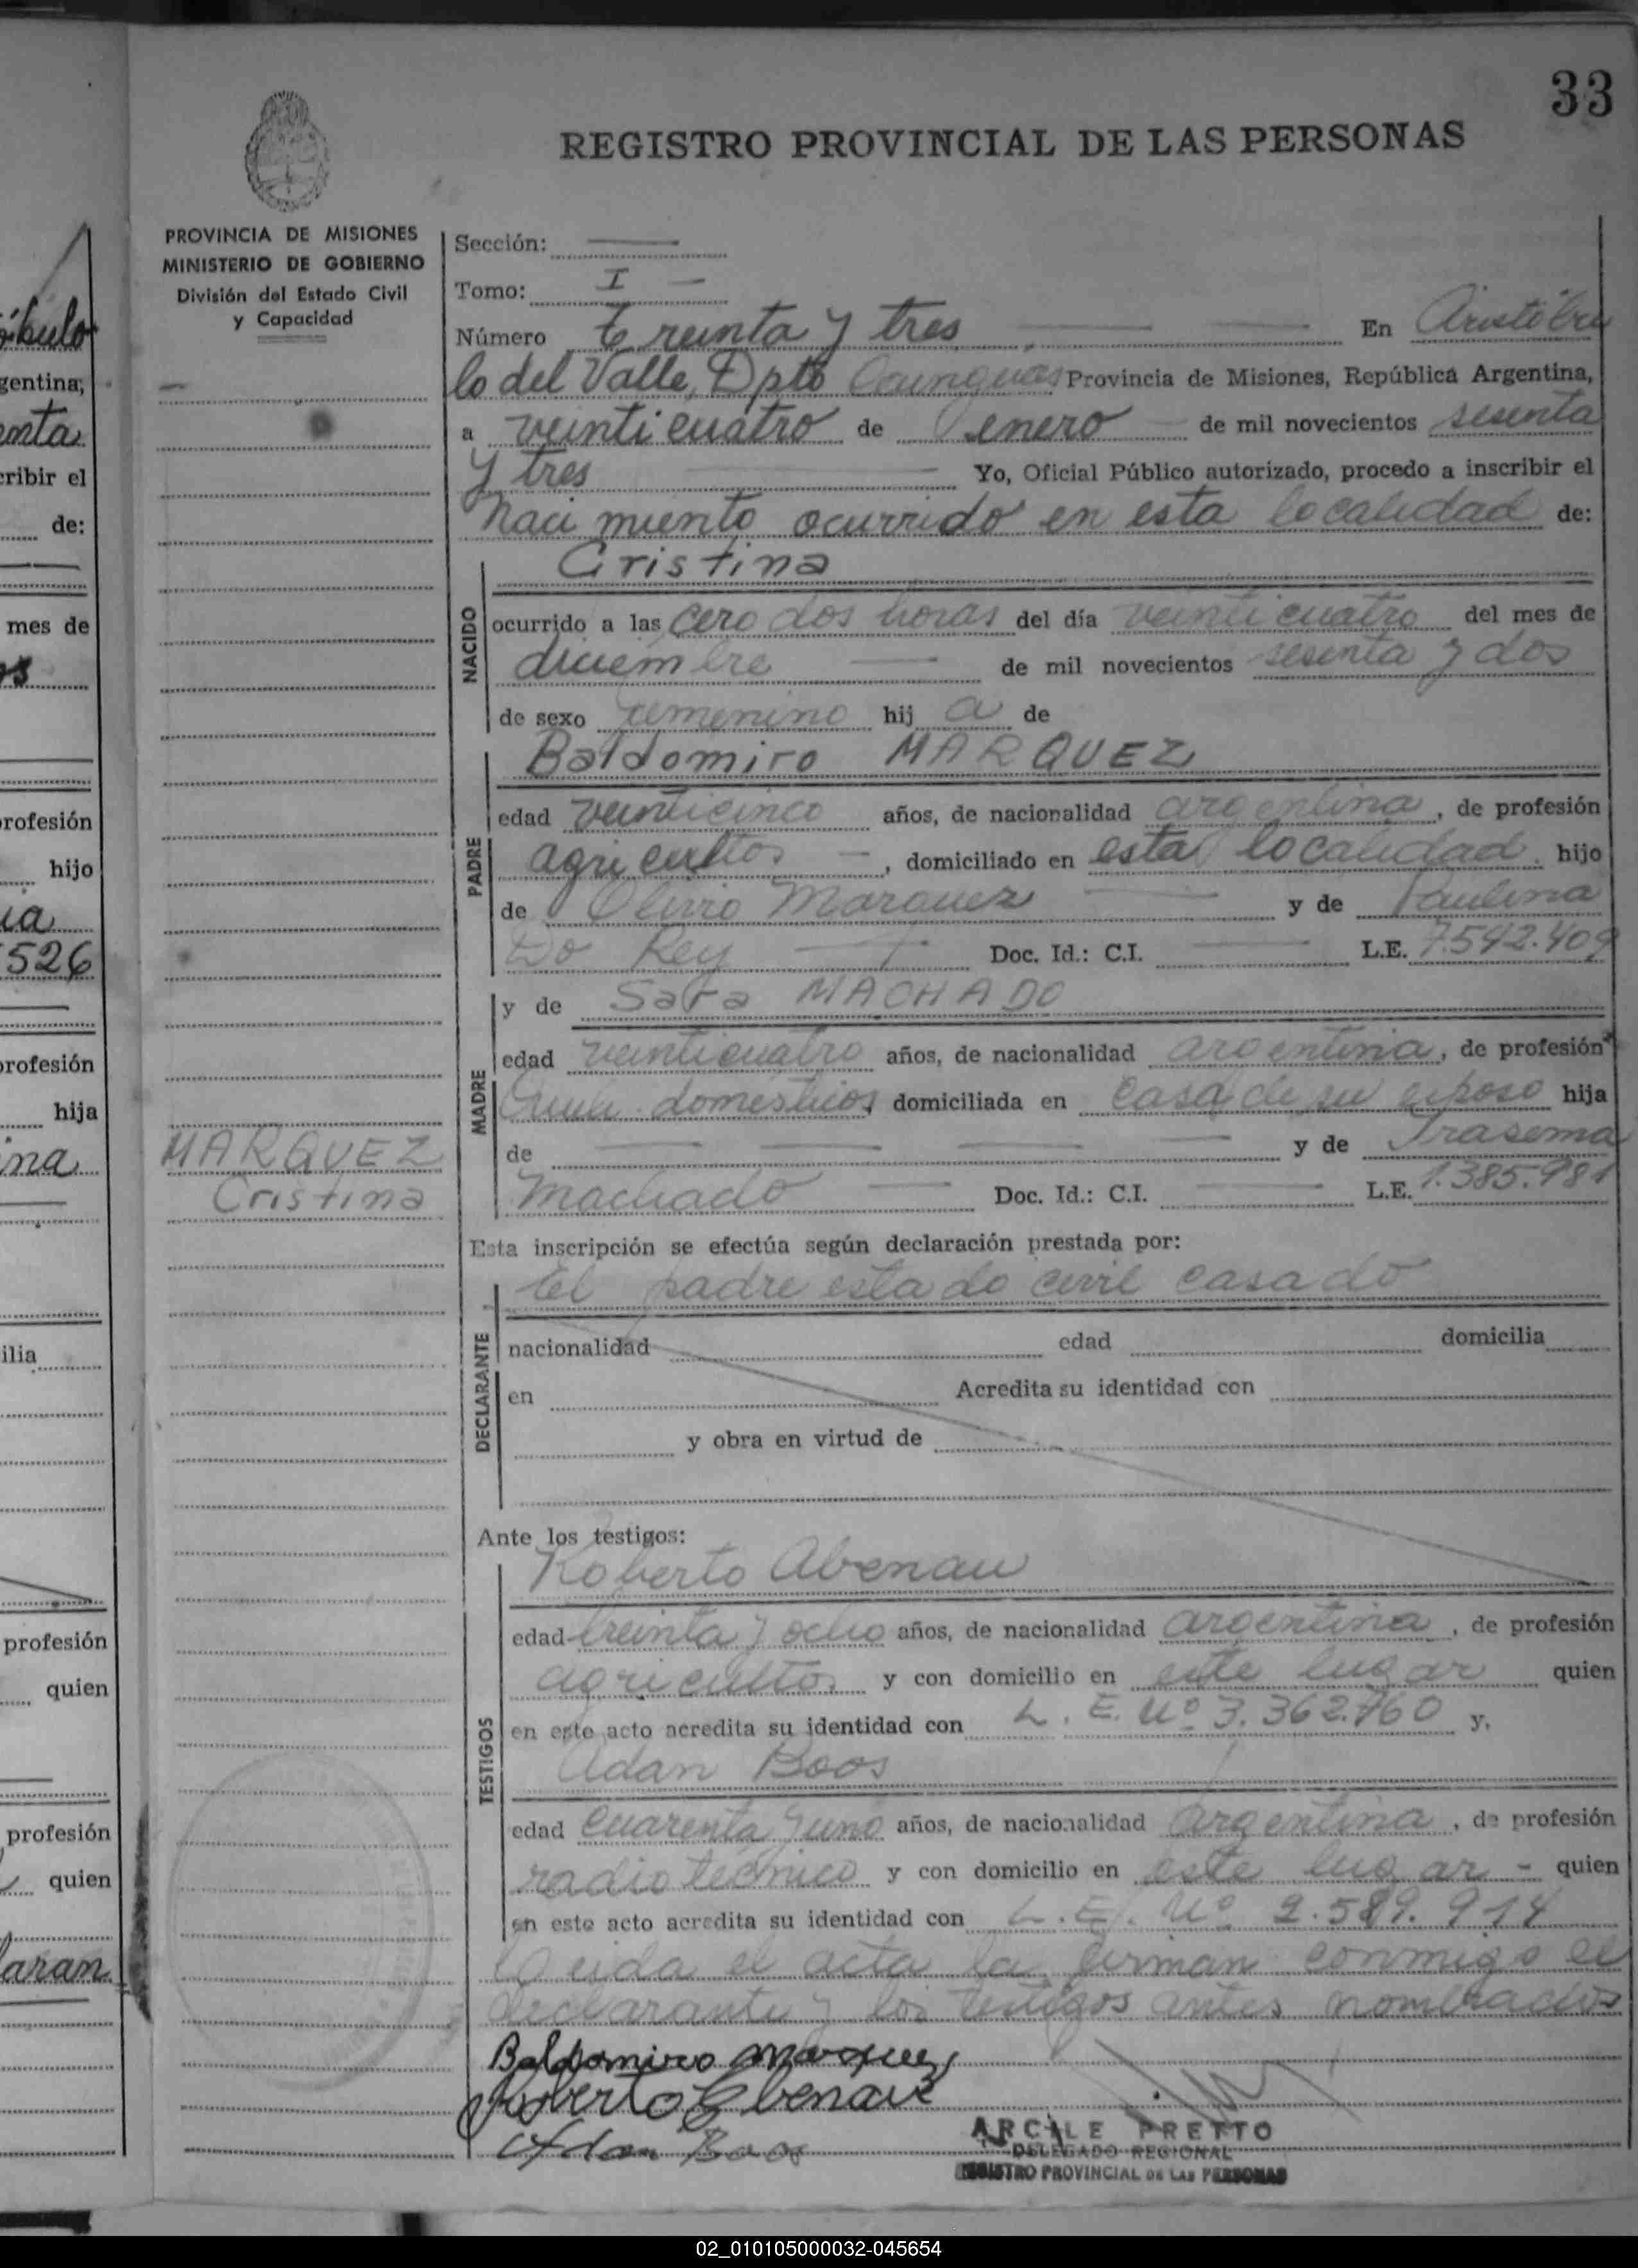 33
REGISTRO PROVINCIAL DE LAS PERSONAS
PROVINCIA DE MISIONES
MINISTERIO DE GOBIERNO
División del Estado Civil
y Capacidad
Sección:
Tomo: I
Número Treinta y tres En Aristóbu
lo del Valle, Dpto Cainguas Provincia de Misiones, República Argentina,
a veinticuatro de enero de mil novecientos sesenta
y tres Yo, Oficial Público autorizado, procedo a inscribir el
nacimiento ocurrido en esta localidad de:
Cristina
NACIDO
ocurrido a las cero dos horas del día veinticuatro del mes de
diciembre de mil novecientos sesenta y dos
de sexo femenino hij a de
Baldomiro MARQUEZ
PADRE
edad veinticinco años, de nacionalidad argentina, de profesión
agricultor, domiciliado en esta localidad hijo
de Olivio Marquez y de Paulina
Do Rey Doc. Id.: C.I. L.E. 7.542.409
y de Sara MACHADO
MADRE
edad veinticuatro años, de nacionalidad argentina, de profesión
domésticos, domiciliada en casa de su esposo hija
de y de Trasema
Machado Doc. Id.: C.I. L.E. 1.385.981
MARQUEZ
Cristina
Esta inscripción se efectúa según declaración prestada por:
El padre estado civil casado
DECLARANTE
nacionalidad edad domicilia
en Acredita su identidad con
y obra en virtud de
Ante los testigos:
Roberto Abenau
TESTIGOS
edad treinta y ocho años, de nacionalidad argentina, de profesión
agricultor y con domicilio en este lugar quien
en este acto acredita su identidad con L. E. Nº 3.362.760 y,
Adan Boos
edad cuarenta y uno años, de nacionalidad argentina, de profesión
radiotécnico y con domicilio en este lugar - quien
en este acto acredita su identidad con L.E. Nº 2.589.914
Leida el acta la firman conmigo el
declarante y los testigos antes nombrados
Baldomiro Marquez
Roberto Ebenau
Adan Boos
ARCILE PRETTO
DELEGADO REGIONAL
REGISTRO PROVINCIAL DE LAS PERSONAS
óbulo
gentina;
enta
cribir el
de:
mes de
os
profesión
hijo
ia
526
profesión
hija
ina
ilia
profesión
quien
profesión
quien
laran
02_010105000032-045654